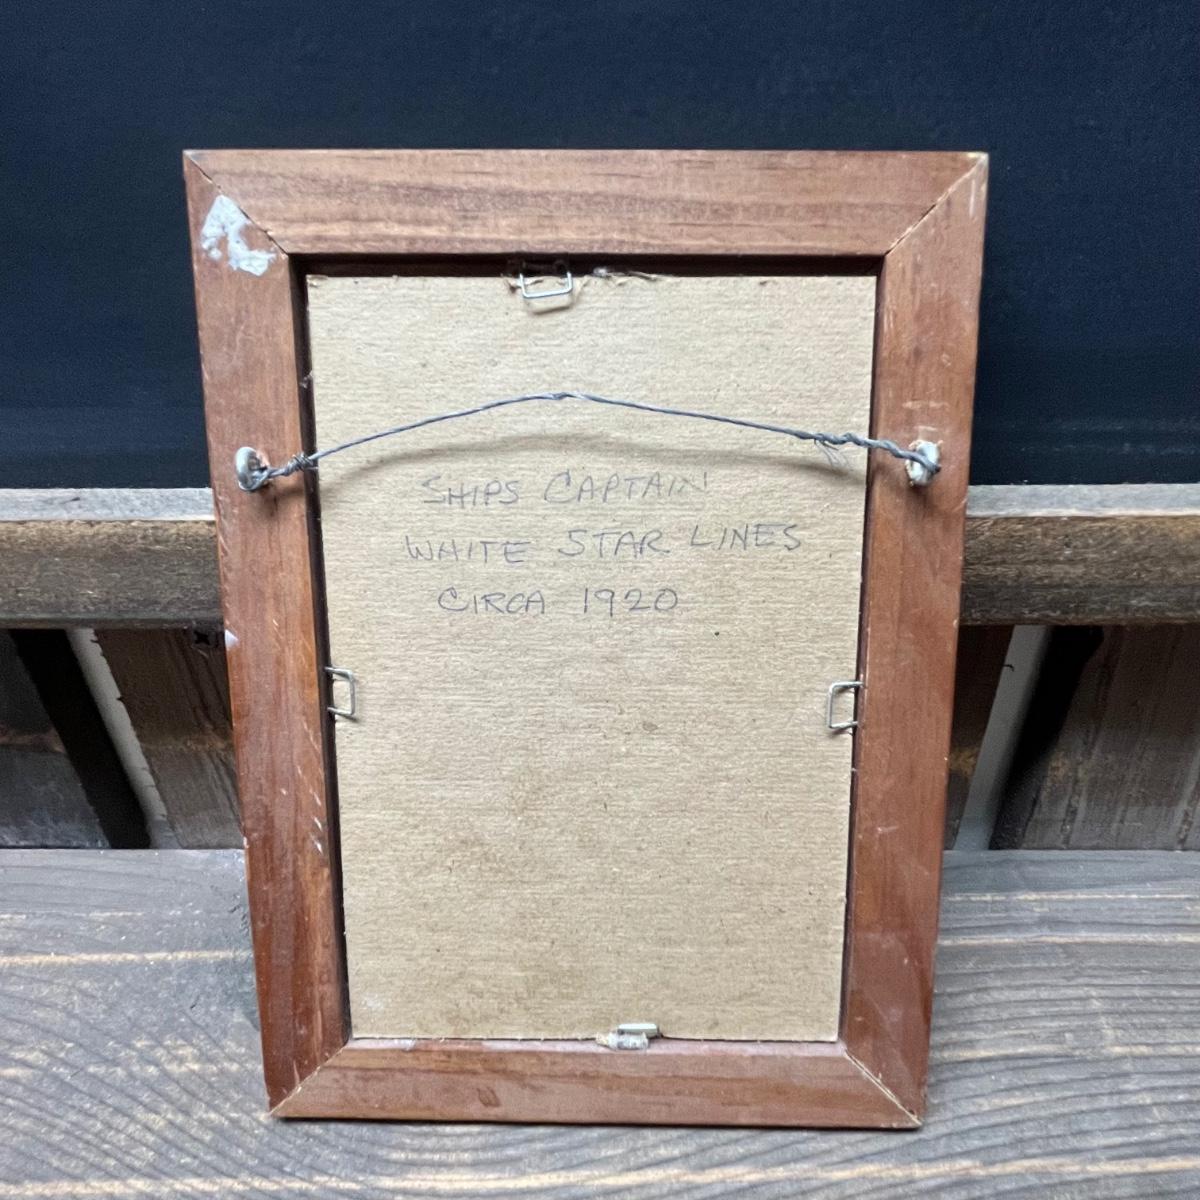 SHIPS CAPTAIN
WHITE STAR LINES.
CIRCA 1920